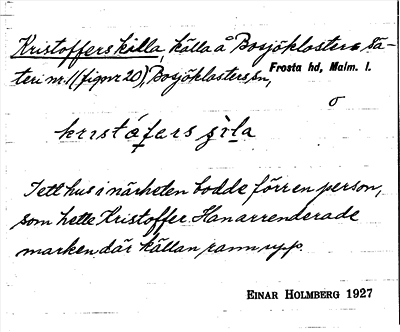 Kristoffers källa, källa å Bosjöklosters sä-
teri nr 1 (fig nr 20), Bosjöklosters sn, Frosta hd, Malm. l.
o
I ett hus i närheten bodde förr en person,
som hette Kristoffer. Han arrenderade
marken, där källan rann upp.
EINAR HOLMBERG 1927